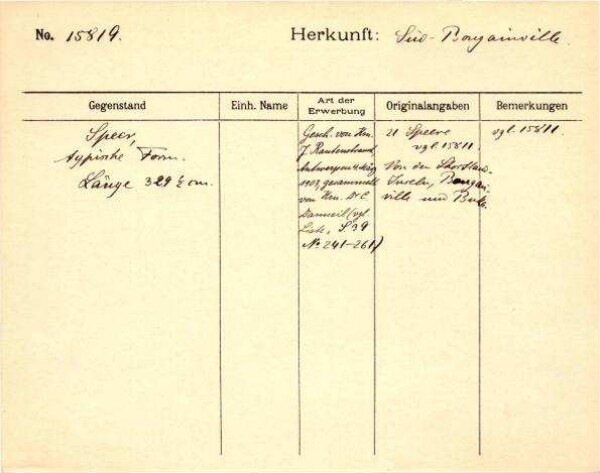 No. 15819. Herkunft: Süd-Bougainville.
Gegenstand Einh. Name Art der Erwerbung Originalangaben Bemerkungen
Speer,
typische Form.
Länge 329 ½ cm.
Gesch. von Hrn.
J. Rautenstrauch,
Antwerpen
1903, gesammelt
von Hrn. Dr. C.
Danneil (vgl.
Liste, S. 39
No 241-261)
21 Speere
vgl. 15811.
Von den Shortland-
Inseln, Bougain-
ville und Buka.
vgl. 15811.